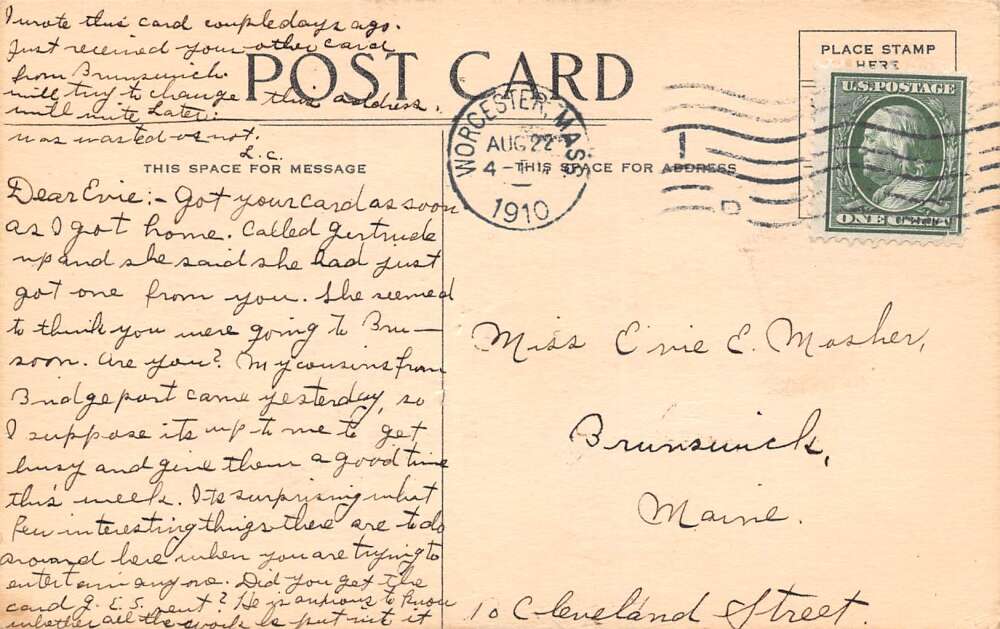 I wrote this card couple days ago.
Just received your other card
from Brunswick.
will try to change this address.
will write later.
was wasted or not.
L.C.
POST CARD
PLACE STAMP
HERE
U.S. POSTAGE
ONE CENT
WORCESTER, MASS.
AUG 22
4-
1910
THIS SPACE FOR MESSAGE
THIS SPACE FOR ADDRESS
Dear Evie:- Got your card as soon
as I got home. Called Gertrude
up and she said she had just
got one from you. She seemed
to think you were going to Bru-
soon. Are you? My cousins from
Bridgeport came yesterday, so
I suppose its up to me to get
busy and give them a good time
this week. Its surprising what
few interesting things there are to do
around here when you are trying to
entertain anyone. Did you get the
card G. E. S. sent? He is anxious to know
whether all the work he put into it
Miss Evie E. Mosher,
Brunswick,
Maine.
10 Cleveland Street.